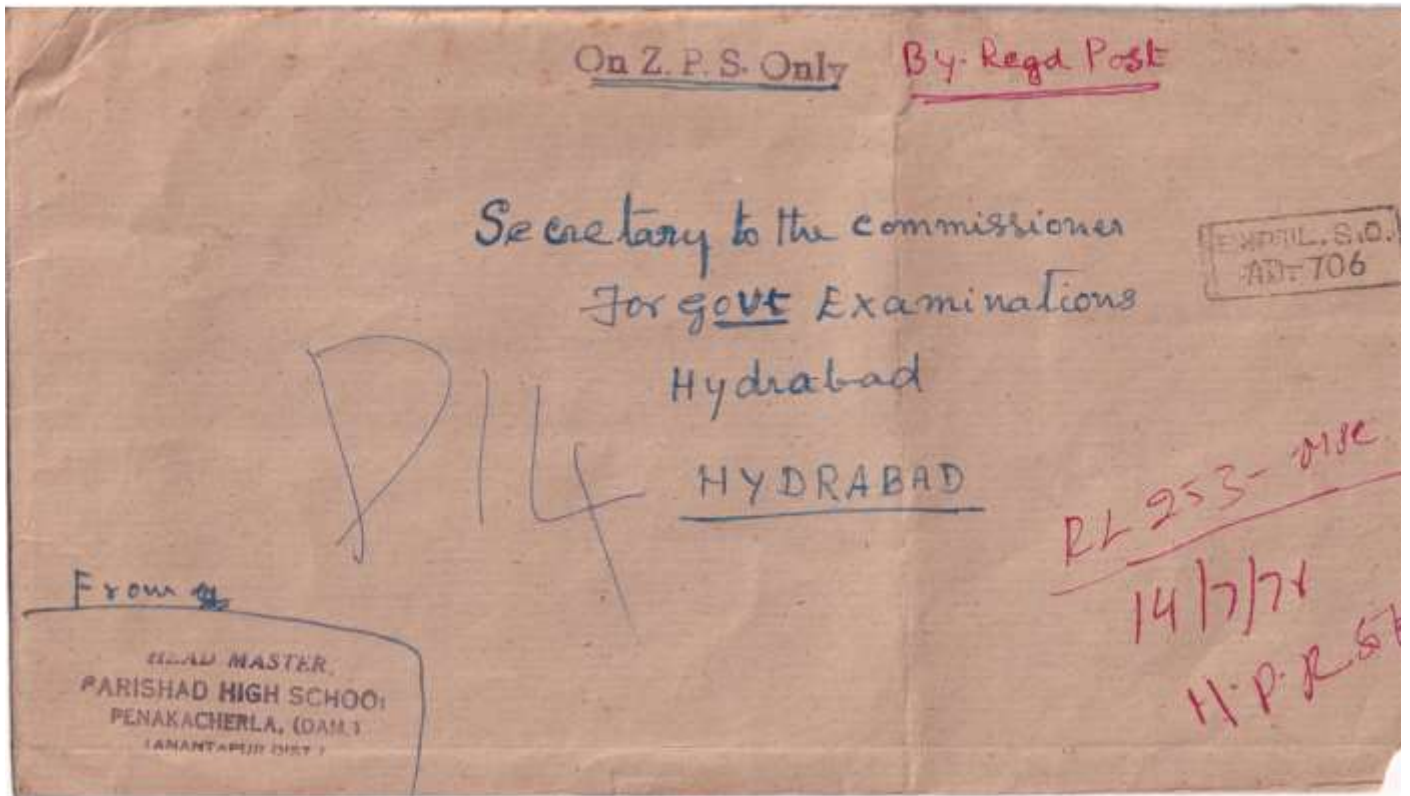 On Z. P. S. Only By. Regd Post
Secretary to the commissioner
For govt Examinations
Hydrabad
HYDRABAD
EXPTL. S.O.
AD-706
P14
RL 253-
14/7/78
H.P.R.
From
HEAD MASTER,
PARISHAD HIGH SCHOOL
PENAKACHERLA, (DAM.)
(ANANTAPUR DIST.)